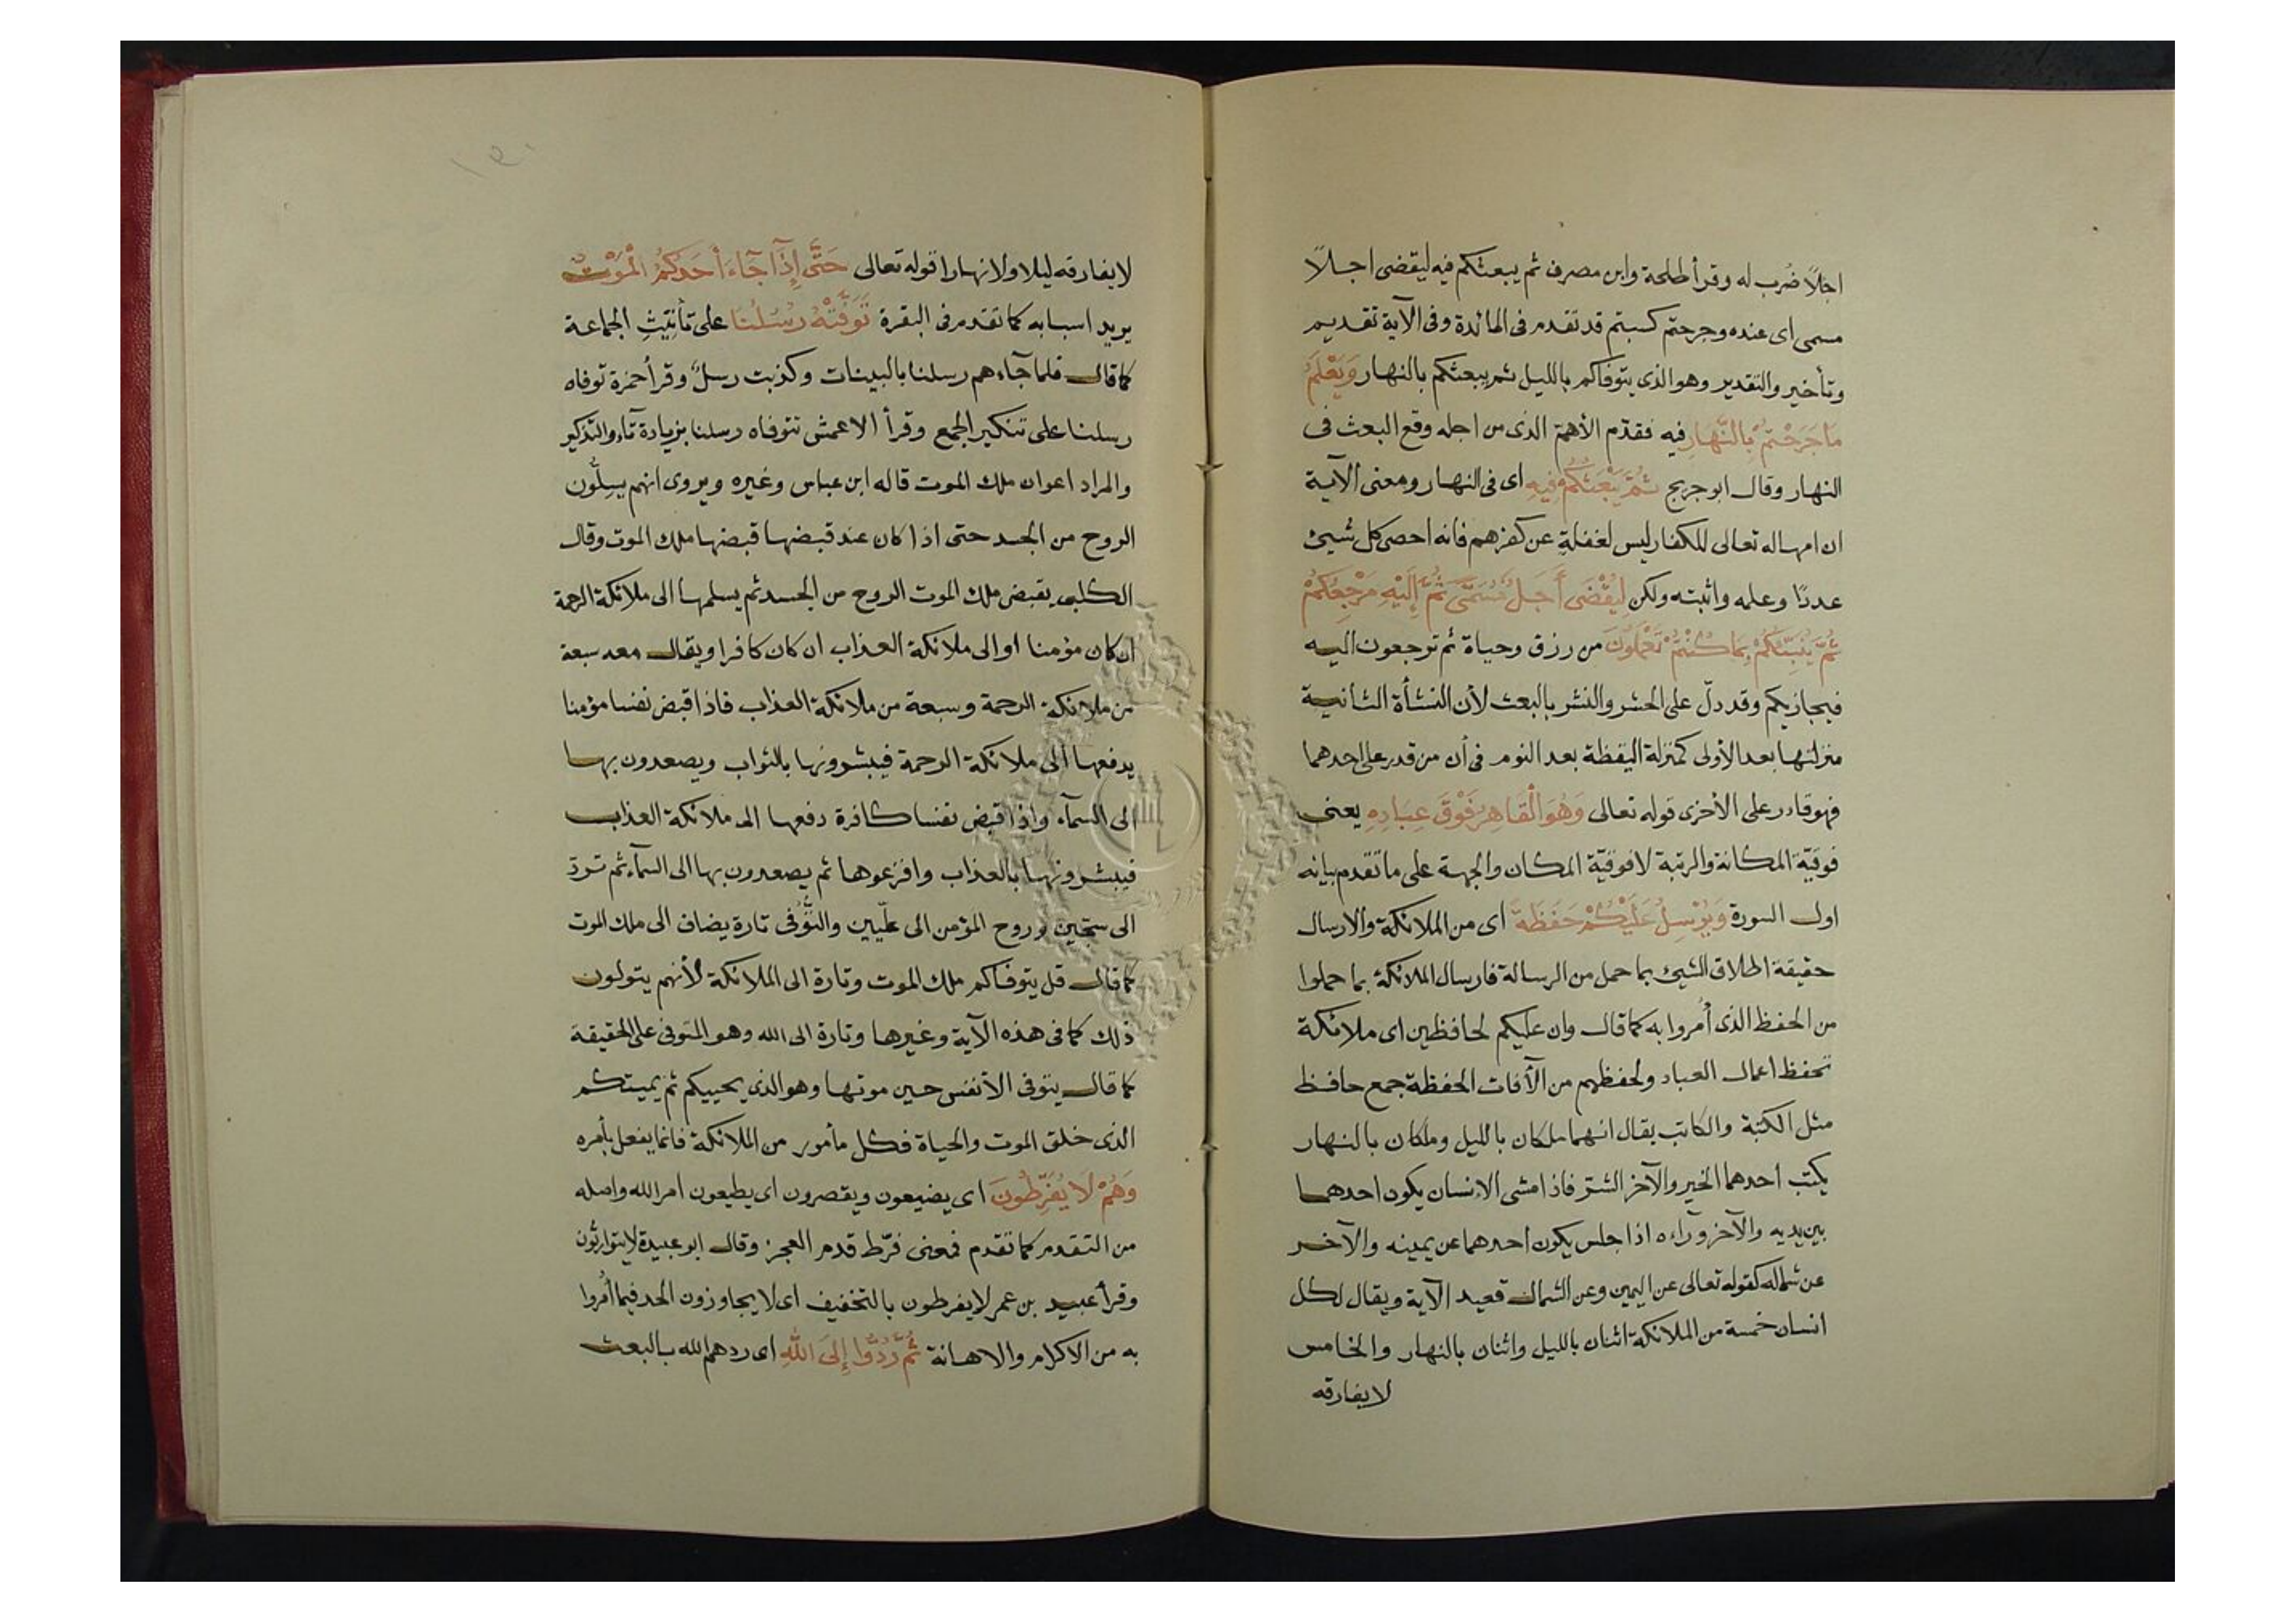 اجلاً ضُرب له وقرأ طلحة وابن مصرف ثم يبعثكم فيه ليقضى اجلاً
مسمى اى عنده وجرحتم كسبتم قد تقدم فى المائدة وفى الآية تقديم
وتأخير والتقدير وهو الذى يتوفاكم بالليل ثم يبعثكم بالنهار وَيَعْلَمُ
مَا جَرَحْتُمْ بِالنَّهَارِ فيه فقدّم الأهمّ الذى من اجله وقع البعث فى
النهار وقال ابو جريج ثُمَّ يَبْعَثُكُمْ فِيهِ اى فى النهار ومعنى الآية
ان امهاله تعالى للكفار ليس لغفلةٍ عن كفرهم فانه احصى كل شيئ
عددًا وعلمه واثبته ولكن لِيُقْضَى أَجَلٌ مُسَمًّى ثُمَّ إِلَيْهِ مَرْجِعُكُمْ
ثُمَّ يُنَبِّئُكُمْ بِمَا كُنْتُمْ تَعْمَلُونَ من رزق وحياة ثم ترجعون اليه
فيجازيكم وقد دلّ على الحشر والنشر بالبعث لأن النشأة الثانية
منزلتها بعد الأولى كمنزلة اليقظة بعد النوم فى أن من قدر على احدهما
فهو قادر على الأخرى قوله تعالى وَهُوَ الْقَاهِرُ فَوْقَ عِبَادِهِ يعنى
فوقيّة المكانة والرتبة لا فوقيّة المكان والجهة على ما تقدم بيانه
اول السورة وَيُرْسِلُ عَلَيْكُمْ حَفَظَةً اى من الملائكة والارسال
حقيقة اطلاق الشيئ بما حمل من الرسالة فارسال الملائكة بما حملوا
من الحفظ الذى أُمروا به كما قال وان عليكم لحافظين اى ملائكة
تحفظ اعمال العباد ولحفظهم من الآفات الحفظة جمع حافظ
مثل الكتبة والكاتب يقال انهما ملكان بالليل وملكان بالنهار
يكتب احدهما الخير والآخر الشرّ فاذا مشى الإنسان يكون احدهما
بين يديه والآخر وراءه اذا جلس يكون أحدهما عن يمينه والآخر
عن شماله كقوله تعالى عن اليمين وعن الشمال قعيد الآية ويقال لكل
انسان خمسة من الملائكة اثنان بالليل واثنان بالنهار والخامس
لا يفارقه
لا يفارقه ليلا ولا نهارا قوله تعالى حَتَّى إِذَا جَاءَ أَحَدَكُمُ الْمَوْتُ
يريد اسبابه كما تقدم فى البقرة تَوَفَّتْهُ رُسُلُنَا على تأنِيثِ الجماعة
كما قال فلما جآءهم رسلنا بالبينات وكذبت رسلٌ وقرأ حمزة توفاه
رسلنا على تنكير الجمع وقرأ الاعمش تتوفاه رسلنا بزيادة تآء والتذكير
والمراد اعوان ملك الموت قاله ابن عباس وغيره ويروى انهم يسِلُّون
الروح من الجسد حتى اذا كان عند قبضها قبضها ملك الموت وقال
الكلبى يقبض ملك الموت الروح من الجسد ثم يسلمها الى ملائكة الرحمة
ان كان مؤمنا او الى ملائكة العذاب ان كان كافرا ويقال معه سبعة
من ملائكة الرحمة وسبعة من ملائكة العذاب فاذا قبض نفسا مؤمنا
يدفعها الى ملائكة الرحمة فيبشرونها بالثواب ويصعدون بها
الى السمآء واذا قبض نفسا كافرة دفعها الى ملائكة العذاب
فيبشرونها بالعذاب وافزعوها ثم يصعدون بها الى السمآء ثم تردّ
الى سجّين وروح المؤمن الى علّيين والتَّوُفى تارة يضاف الى ملك الموت
كما قال قل يتوفاكم ملك الموت وتارة الى الملائكة لأنهم يتولون
ذلك كما فى هذه الآية وغيرها وتارة الى الله وهو المتوفى على الحقيقة
كما قال يتوفى الأنفس حين موتها وهو الذى يحييكم ثم يميتكم
الذى خلق الموت والحياة فكل مأمور من الملائكة فانما يفعل بأمره
وَهُمْ لَا يُفَرِّطُونَ اى يضيعون ويقصرون اى يطيعون امر الله واصله
من التقدم كما تقدم فمعنى فرّط قدم العجز وقال ابو عبيدة لا يتوارثون
وقرأ عبيد بن عمر لا يفرطون بالتخفيف اى لا يجاوزون الحد فيما أُمروا
به من الاكرام والاهانة ثُمَّ رُدُّوا إِلَى اللهِ اى ردهم الله بالبعث